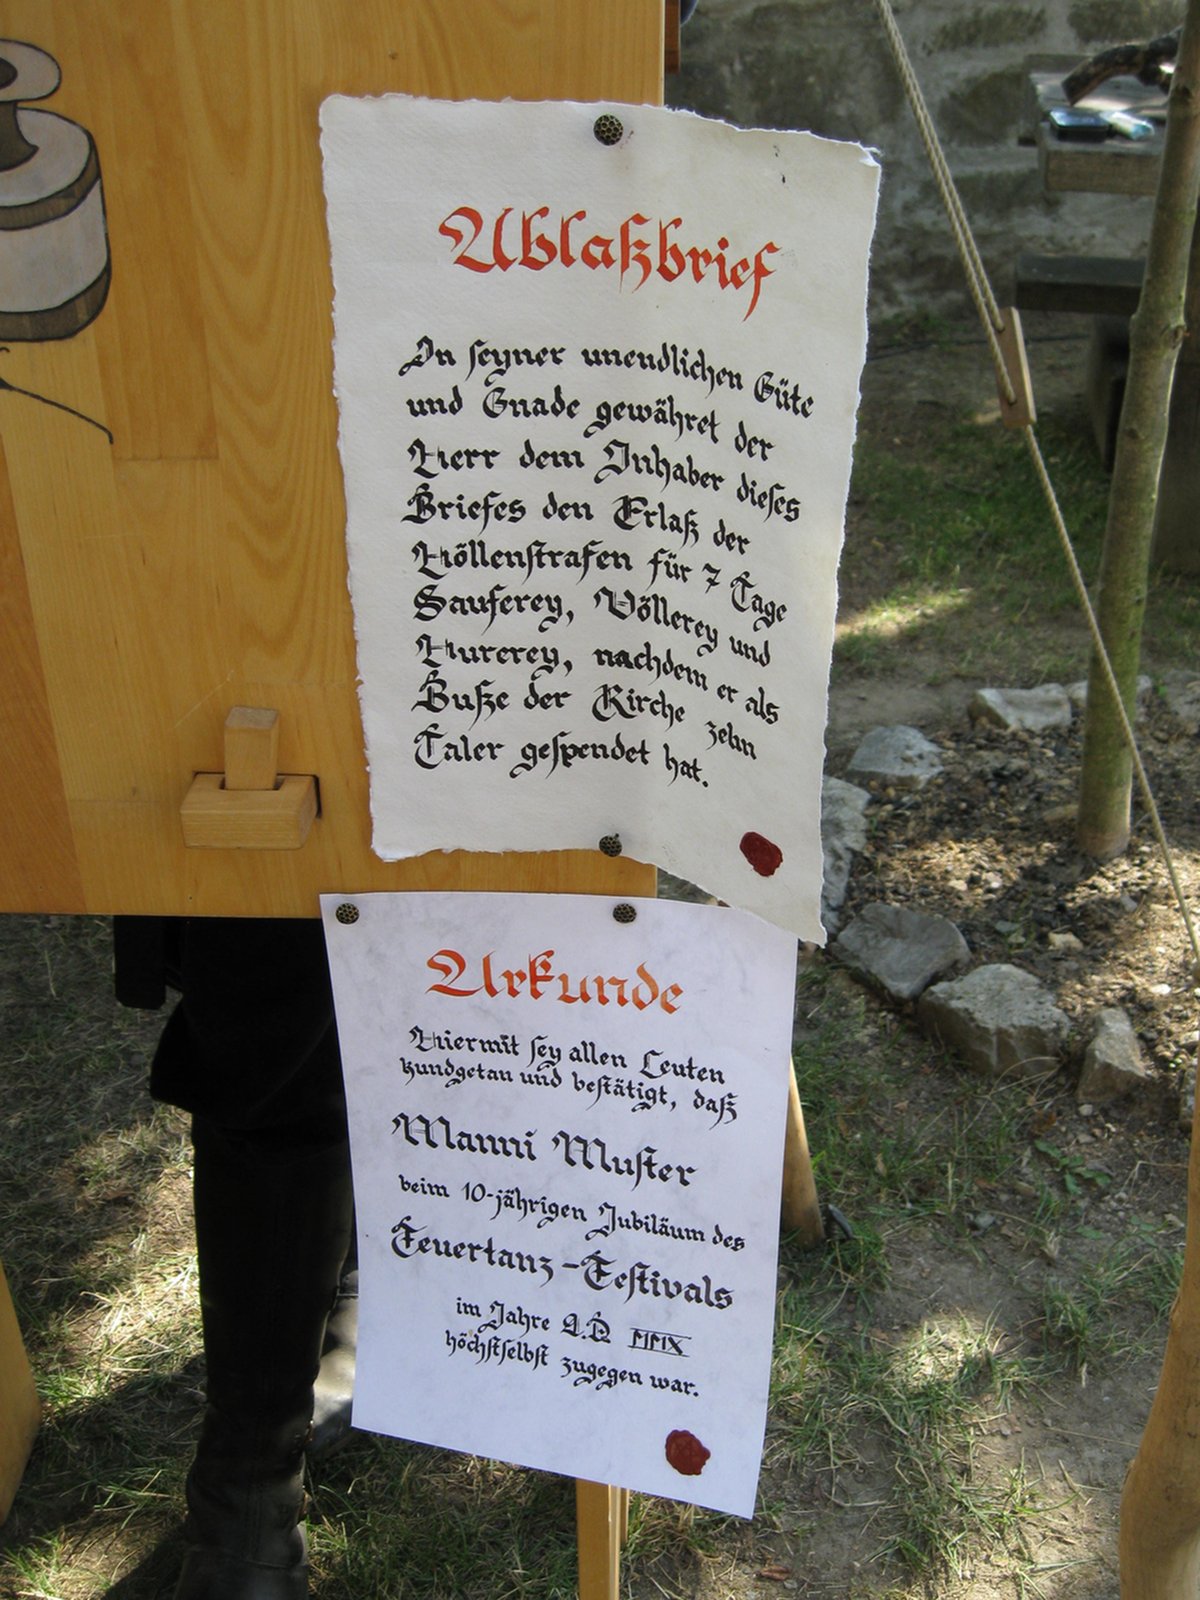 Ablaßbrief
In seyner unendlichen Güte
und Gnade gewähret der
Herr dem Inhaber dieses
Briefes den Erlaß der
Höllenstrafen für 7 Tage
Sauferey, Völlerey und
Hurerey, nachdem er als
Buße der Kirche zehn
Taler gespendet hat.
Urkunde
Hiermit sey allen Leuten
kundgetan und bestätigt, daß
Manni Muster
beim 10-jährigen Jubiläum des
Feuertanz-Festivals
im Jahre A.D. MMX
höchstselbst zugegen war.